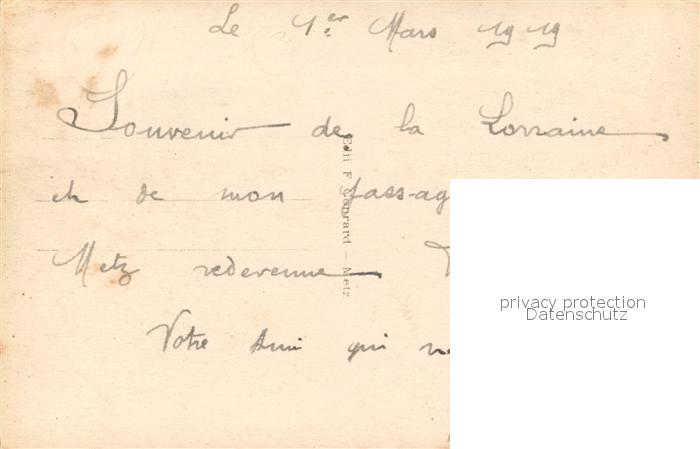 Le 1er Mars 1919
Souvenir de la Lorraine
et de mon passag
Metz redevenue
Votre Ami qui
Edit F. Conrard — Metz
privacy protection
Datenschutz